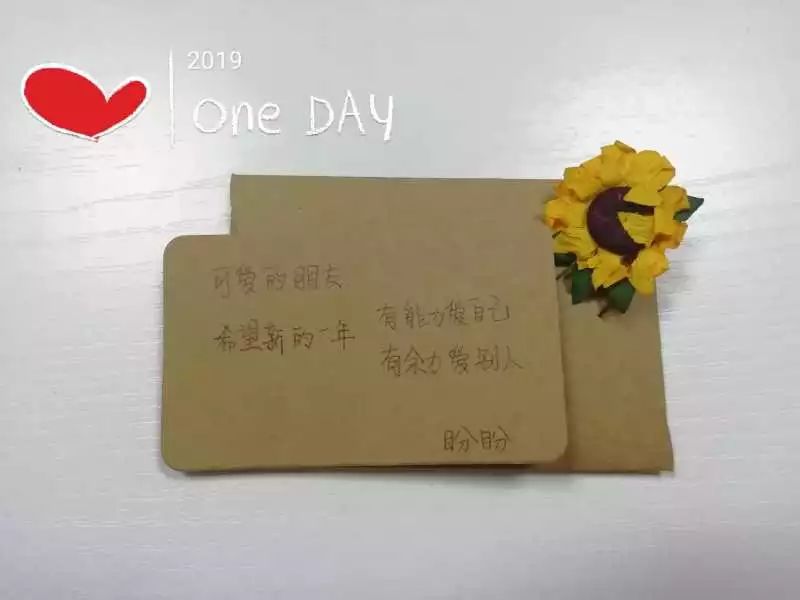 2019
One DAY
可爱的朋友
希望新的一年
有能力爱自己
有余力爱别人
盼盼